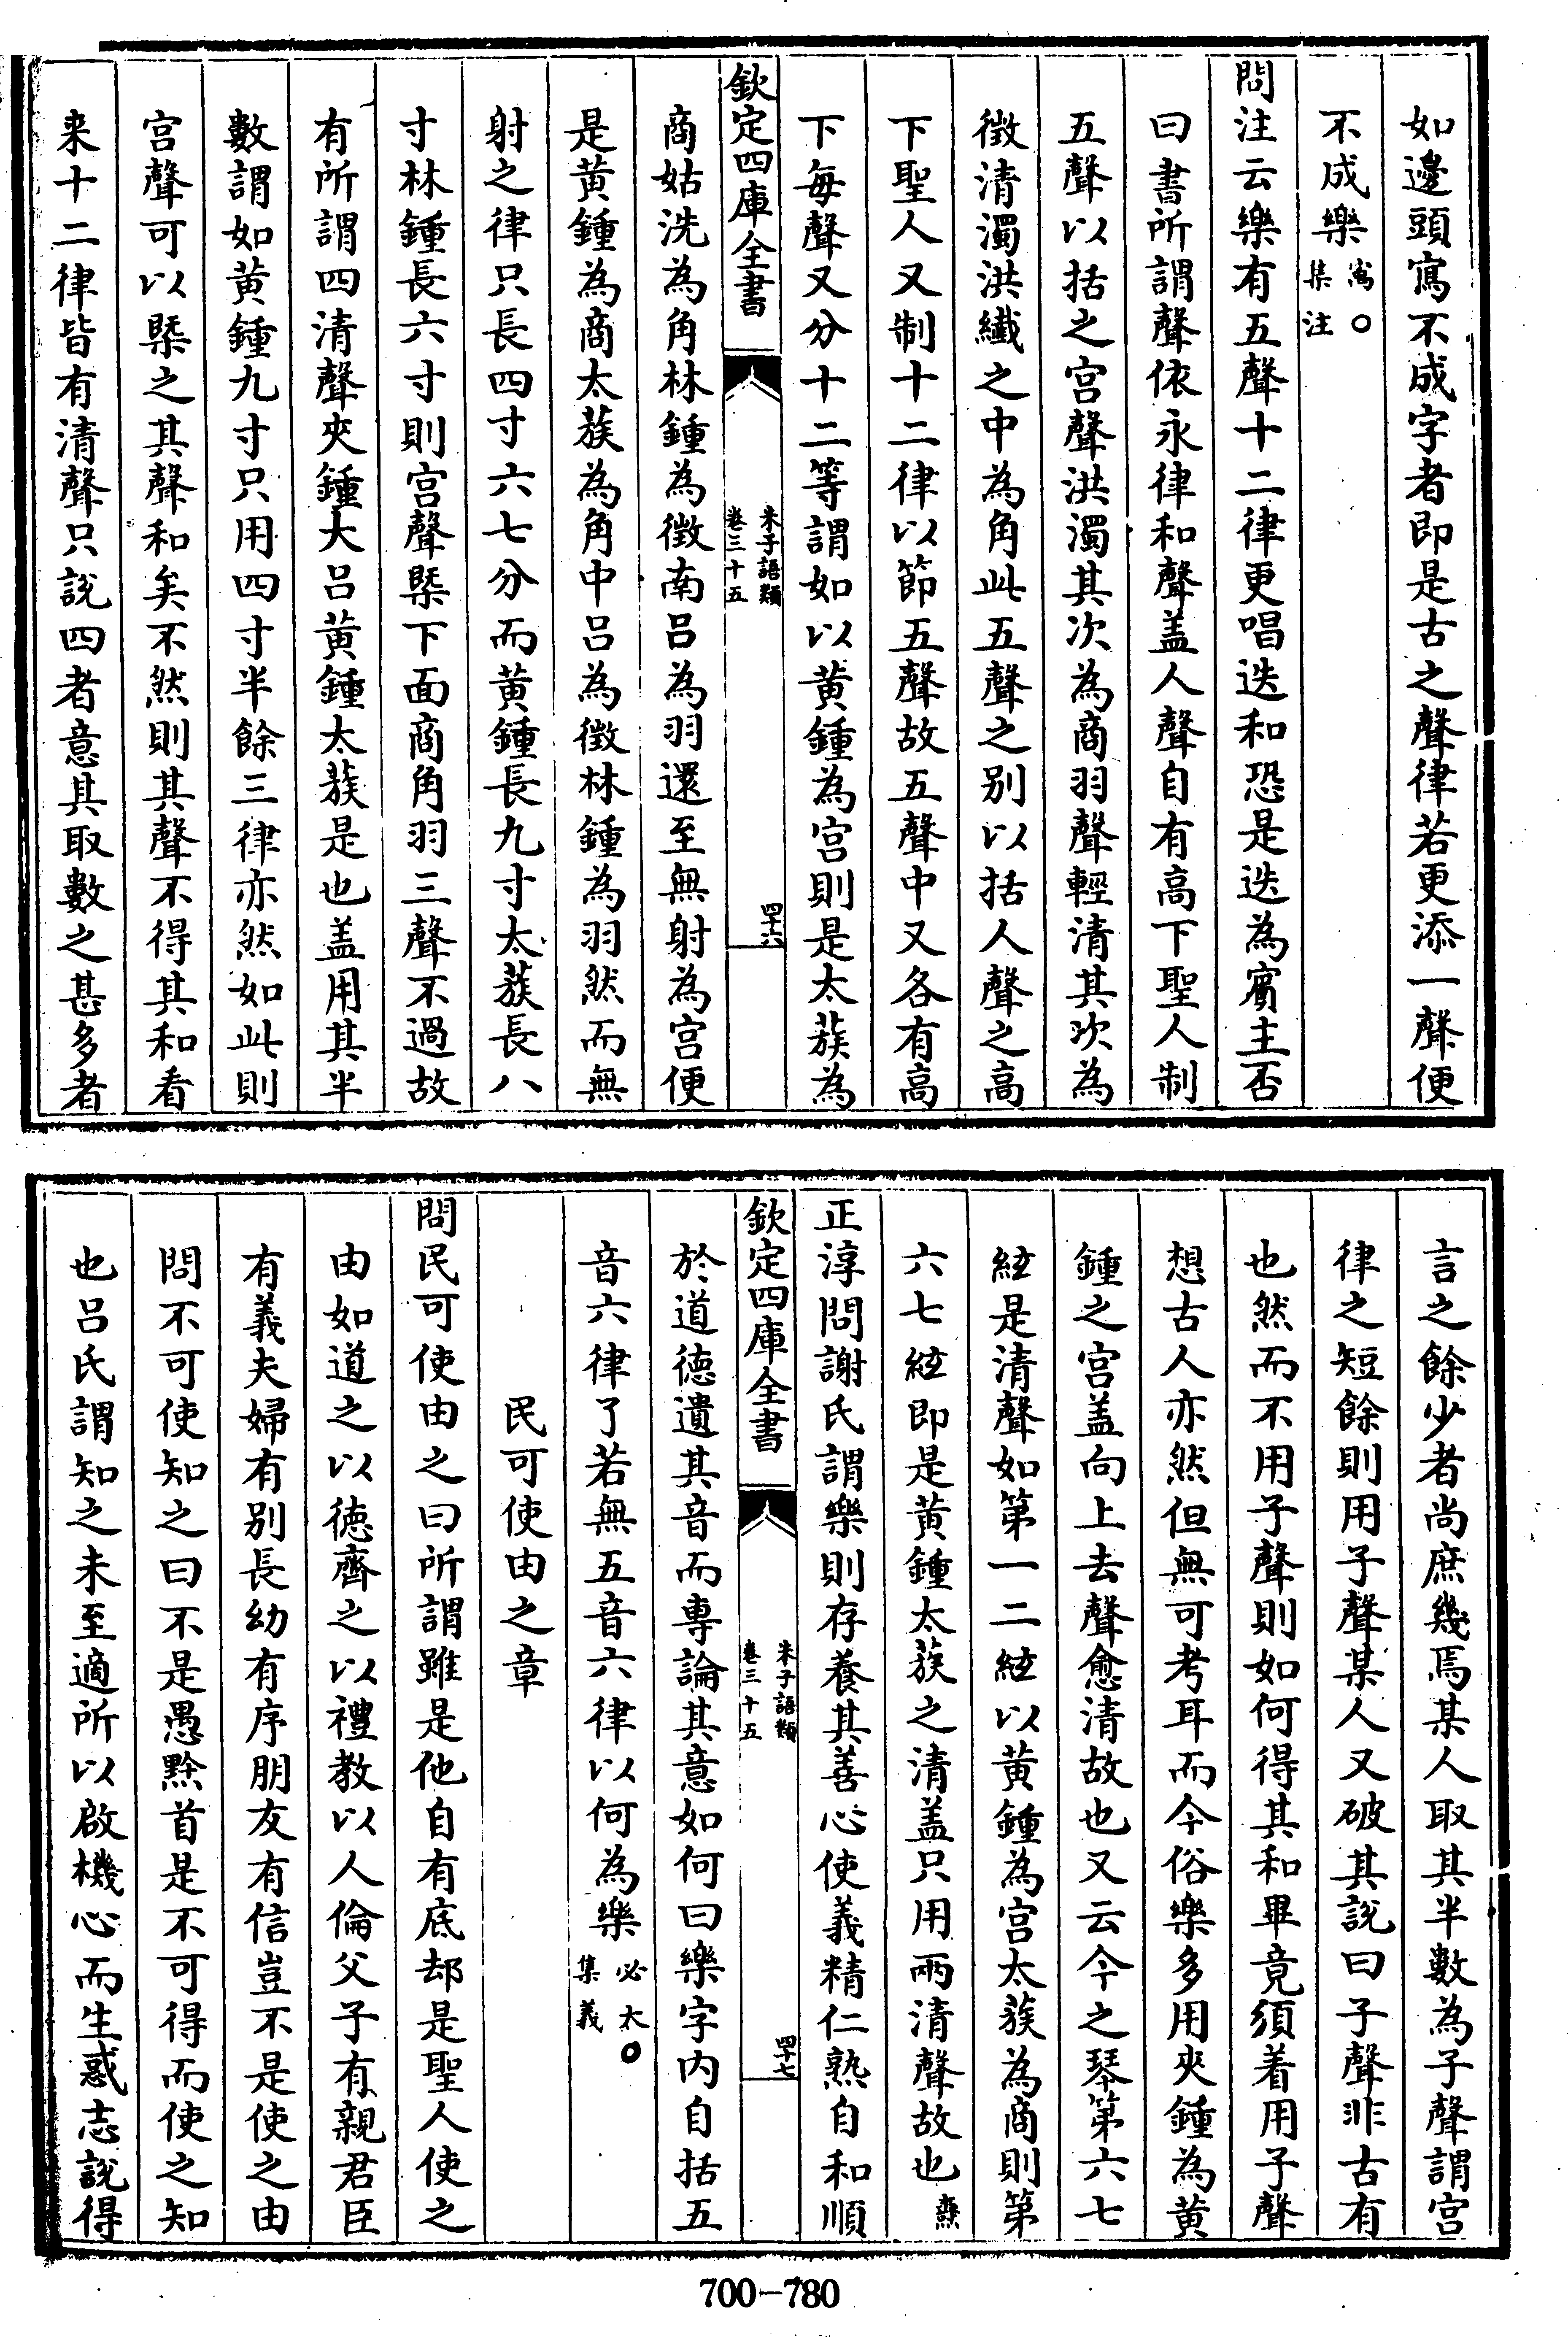 如邊頭寫不成字者即是古之聲律若更添一聲便
不成樂㝢○集注
問注云樂有五聲十二律更唱迭和恐是迭為賓主否
曰書所謂聲依永律和聲盖人聲自有高下聖人制
五聲以括之宫聲洪濁其次為商羽聲輕清其次為
徵清濁洪纎之中為角此五聲之别以括人聲之高
下聖人又制十二律以節五聲故五聲中又各有高
下每聲又分十二等謂如以黄鍾為宫則是太蔟為
欽定四庫全書
朱子語類
卷三十五
四十六
商姑洗為角林鍾為徵南吕為羽還至無射為宫便
是黄鍾為商太蔟為角中吕為徵林鍾為羽然而無
射之律只長四寸六七分而黄鍾長九寸太蔟長八
寸林鍾長六寸則宫聲槩下面商角羽三聲不過故
有所謂四清聲夾鍾大吕黄鍾太蔟是也盖用其半
數謂如黄鍾九寸只用四寸半餘三律亦然如此則
宫聲可以槩之其聲和矣不然則其聲不得其和看
来十二律皆有清聲只說四者意其取數之甚多者
言之餘少者尚庶幾焉某人取其半數為子聲謂宫
律之短餘則用子聲某人又破其說曰子聲非古有
也然而不用子聲則如何得其和畢竟須着用子聲
想古人亦然但無可考耳而今俗樂多用夾鍾為黄
鍾之宫盖向上去聲愈清故也又云今之琴第六七
絃是清聲如第一二絃以黄鍾為宫太蔟為商則第
六七絃即是黄鍾太蔟之清盖只用兩清聲故也㽦
正淳問謝氏謂樂則存養其善心使義精仁熟自和順
欽定四庫全書
朱子語類
卷三十五
四十七
於道徳遺其音而專論其意如何曰樂字内自括五
音六律了若無五音六律以何為樂必大○集義
民可使由之章
問民可使由之曰所謂雖是他自有底却是聖人使之
由如道之以徳齊之以禮教以人倫父子有親君臣
有義夫婦有别長幼有序朋友有信豈不是使之由
問不可使知之曰不是愚黔首是不可得而使之知
也吕氏謂知之未至適所以啟機心而生惑志說得
700-780